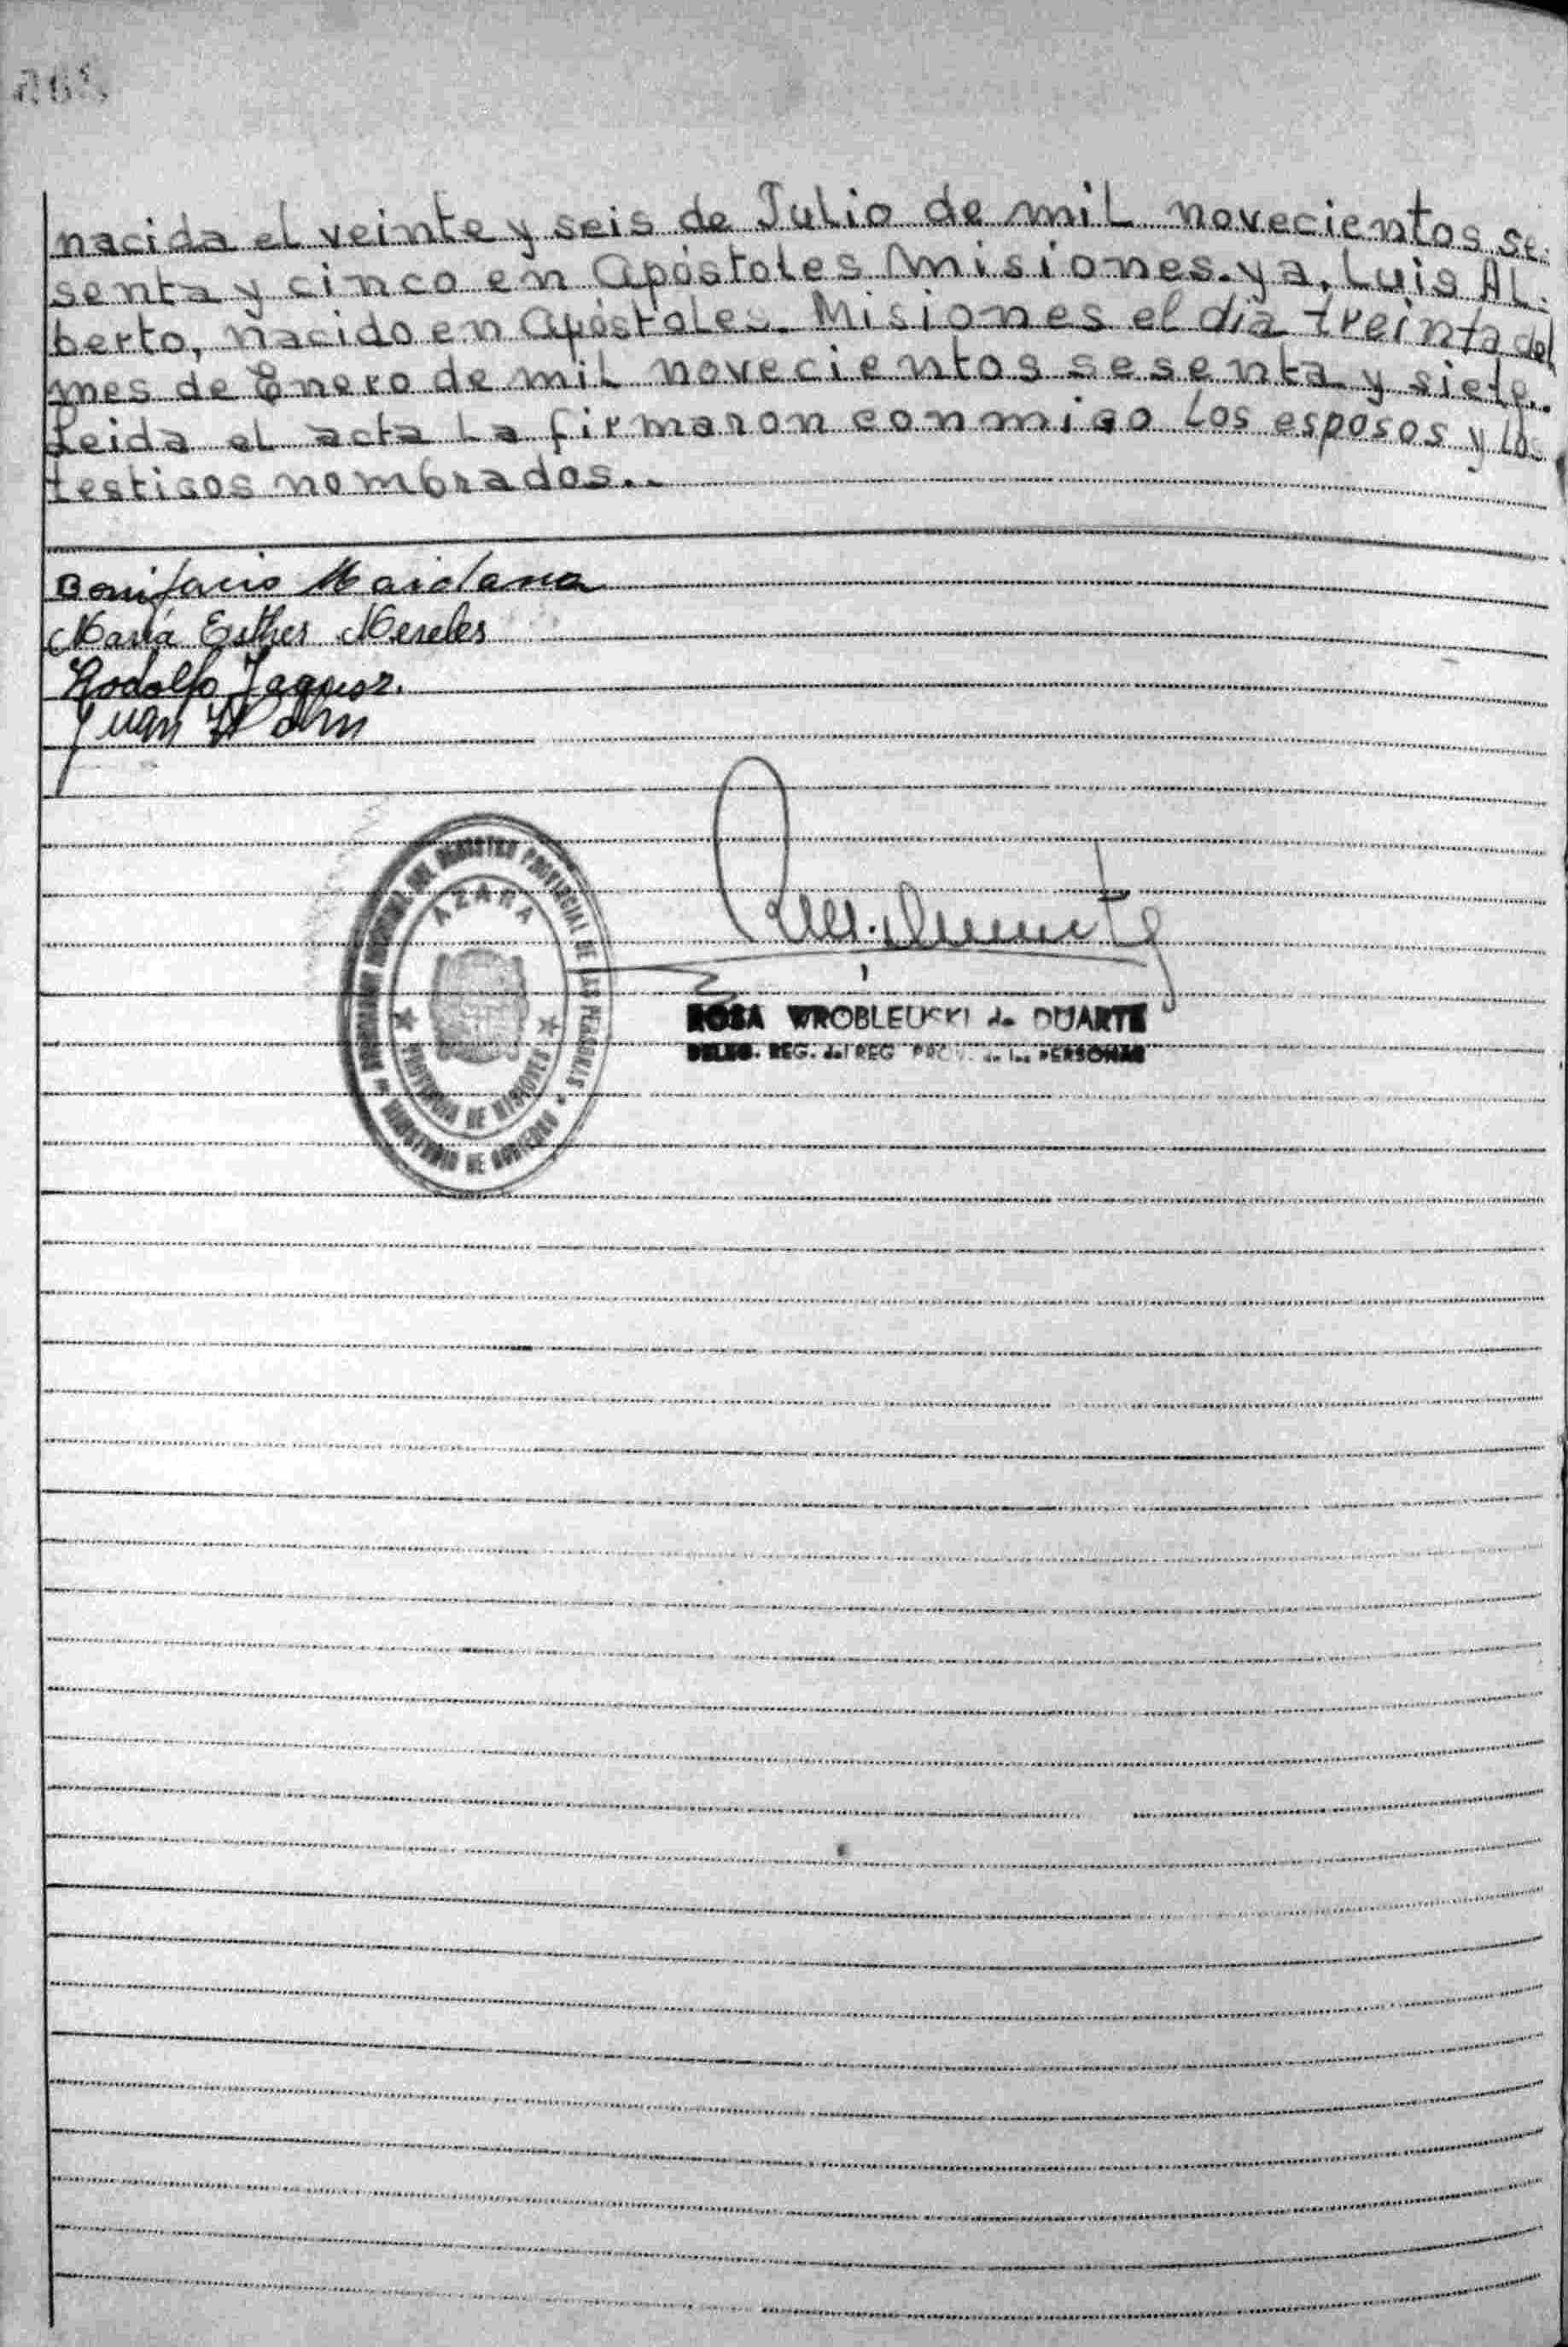 nacida el veinte y seis de Julio de mil novecientos se-
senta y cinco en Apóstoles Misiones. y a, Luis Al-
berto, nacido en Apóstoles. Misiones el día treinta del
mes de Enero de mil novecientos sesenta y siete.-
Leida el acta la firmaron conmigo los esposos y los
testigos nombrados..-
Bonifacio Maidana
María Esther Mereles
Rodolfo
Juan
REGISTRO PROVINCIAL DE LAS PERSONAS
AZARA
PROVINCIA DE MISIONES
MINISTERIO DE GOBIERNO
ROSA WROBLEUSKI de DUARTE
DELEG. REG. del REG PROV. de las PERSONAS